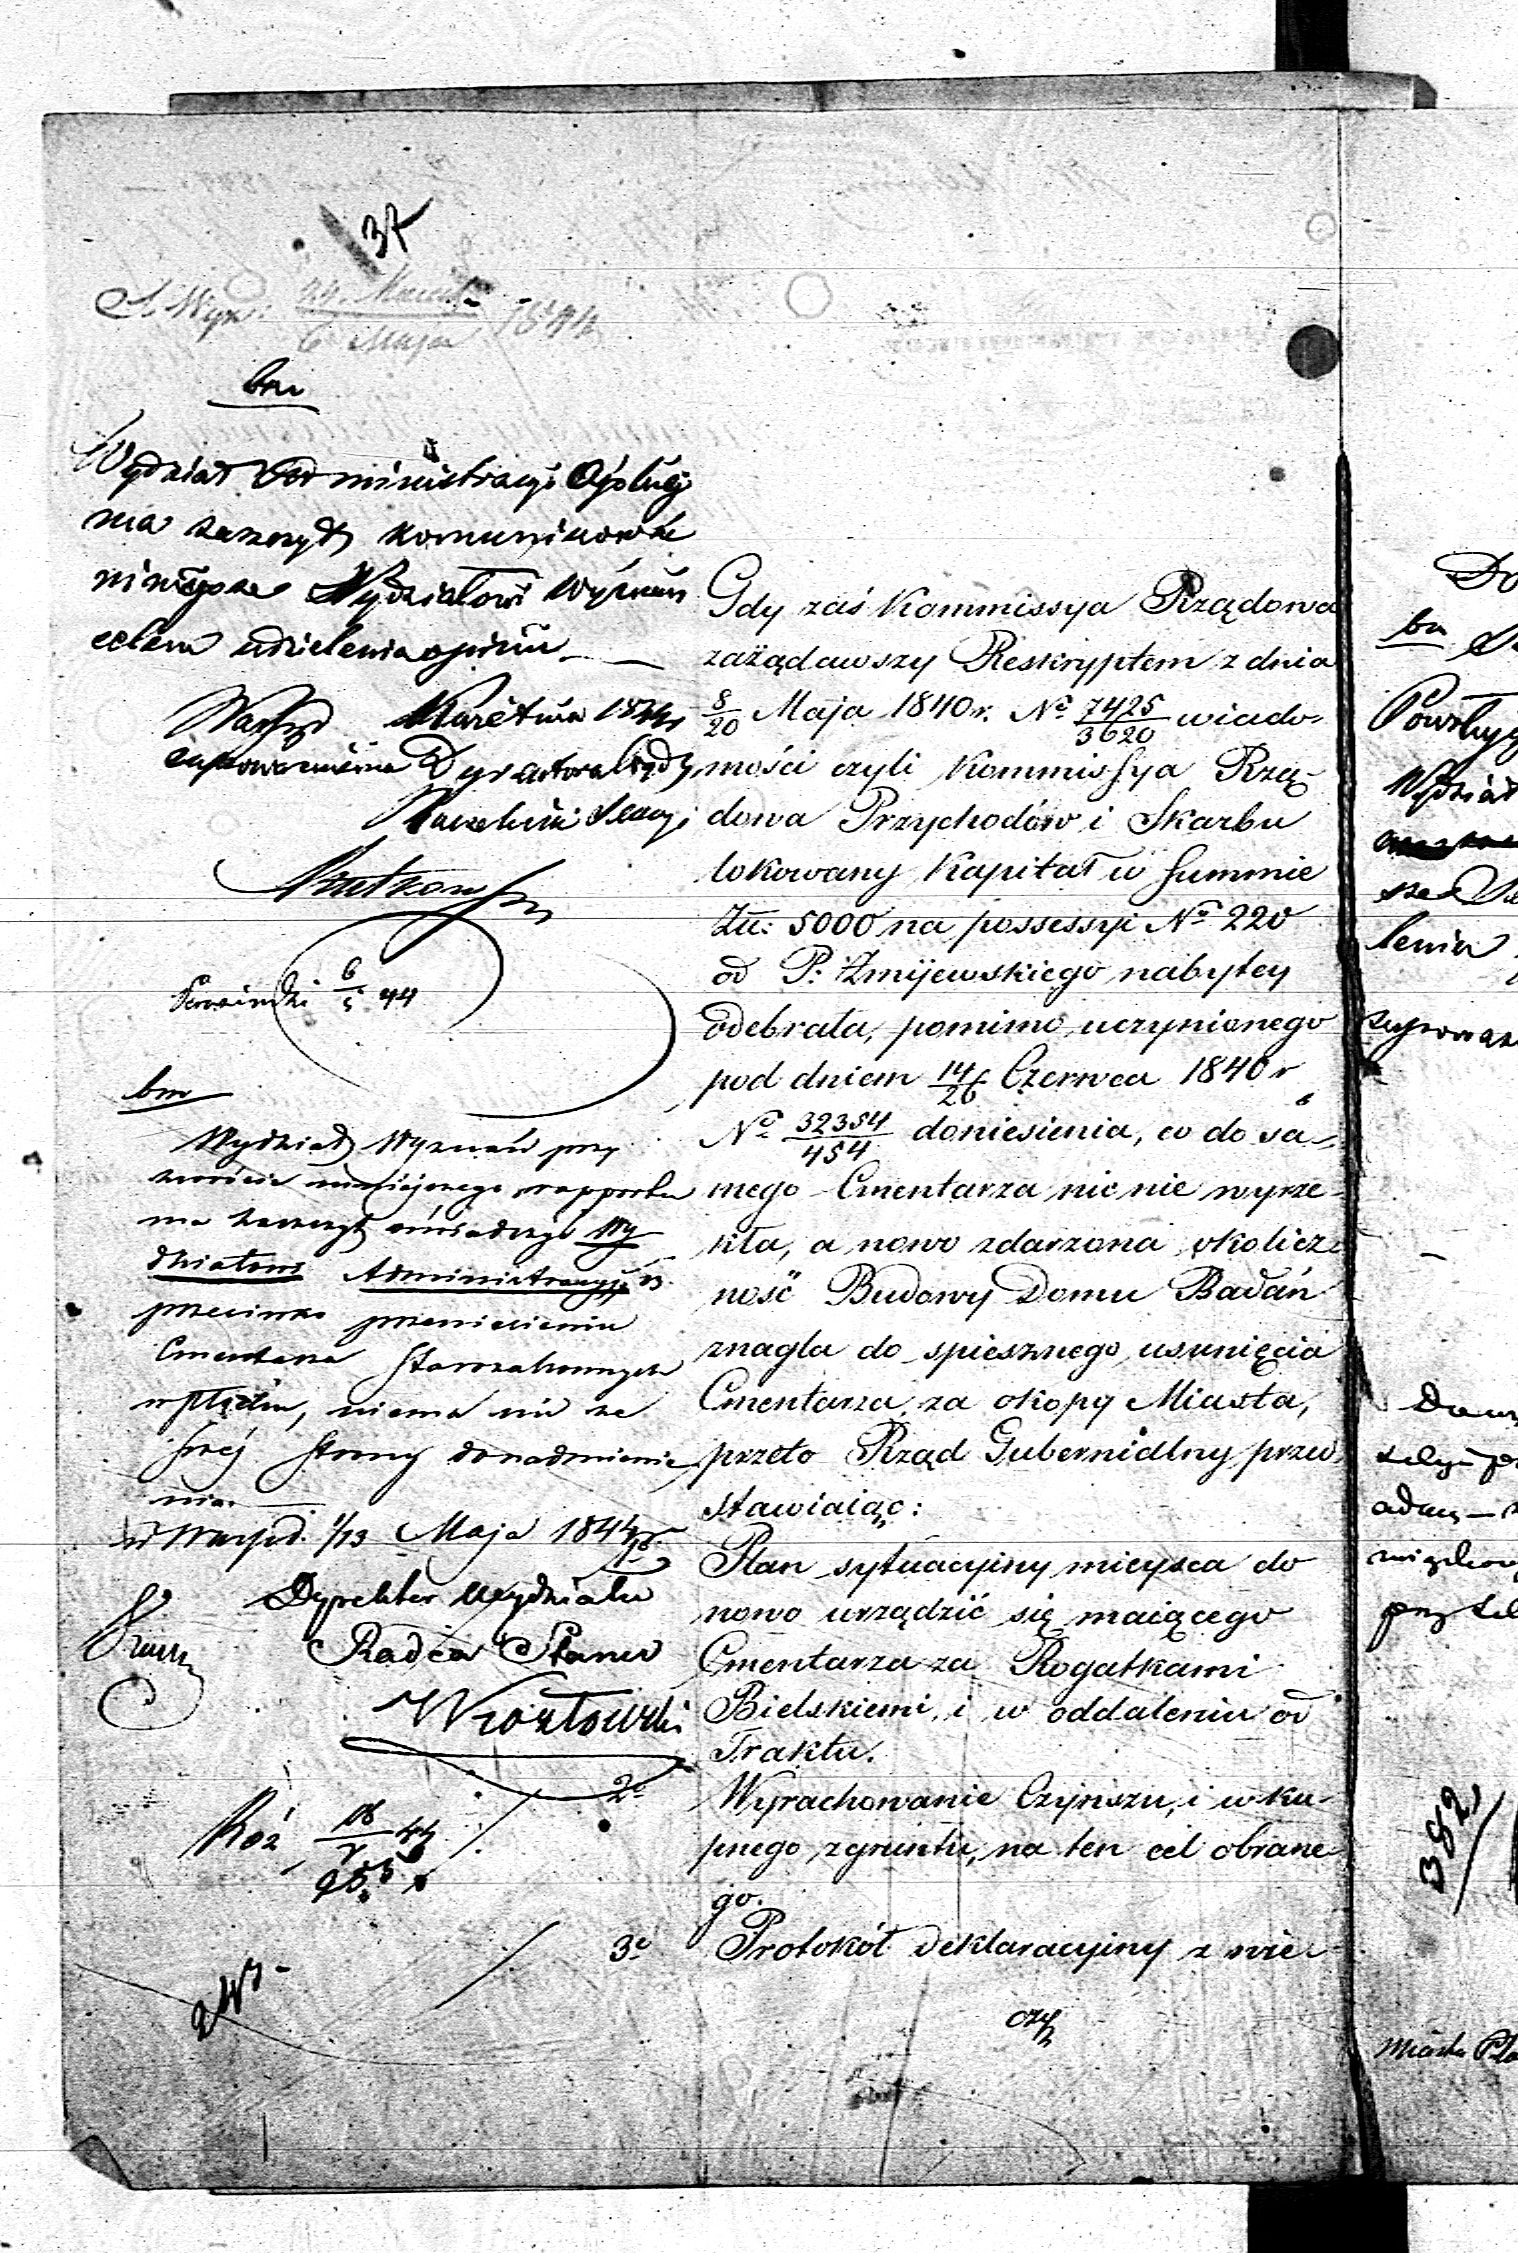 37
6 Maja 1844
bm
Wydział Administracyi Ogólnej
ma zaszczyt komunikować
niniejsze Wydziałowi Wyznań
celem udzielenia opinii
Kwietnia 1844
z upoważnienia Dyrektora
Naczelnik Sekcyi
6/5 44
bm
Wydział Wyznań przy
zwrocie niniejszego rapportu
ma zaszczyt oświadczyć Wy-
działowi Administracyj. iż
przeciwko przeniesieniu
Cmentarza Starozakonnych
w Płocku, niema nic ze
swej strony do nadmienie-
nia.
w Warsz. 1/13 Maja 1844 r.
Dyrektor Wydziału
Radca Stanu
Kozłowski
Gdy zaś Kommissya Rządowa
zażądawszy Reskryptem z dnia
8/20 Maja 1840 r. No 7425/3620 wiado-
mości czyli Kommissya Rzą-
dowa Przychodów i Skarbu
lokowany Kapitał w Summie
Złł: 5000 na possessyi No 220
od P. Żmijewskiego nabytey
odebrała, pomimo uczynionego
pod dniem 14/26 Czerwca 1840 r
No 32354/454 doniesienia, co do sa-
mego Cmentarza nic nie wyrze-
kła, a nowo zdarzona okolicz-
ność Budowy Domu Badań
znagla do spiesznego usunięcia
Cmentarza za okopy Miasta,
przeto Rząd Gubernialny przed-
stawiaiąc:
Plan sytuacyiny mieysca do
nowo urządzić się maiącego
Cmentarza za Rogatkami
Bielskiemi, i w oddaleniu od
Traktu.
2o Wyrachowanie Czynszu, i wku-
pnego z gruntu, na ten cel obrane-
go.
3o Protokół deklaracyiny z wie-
czy
382
Miasta